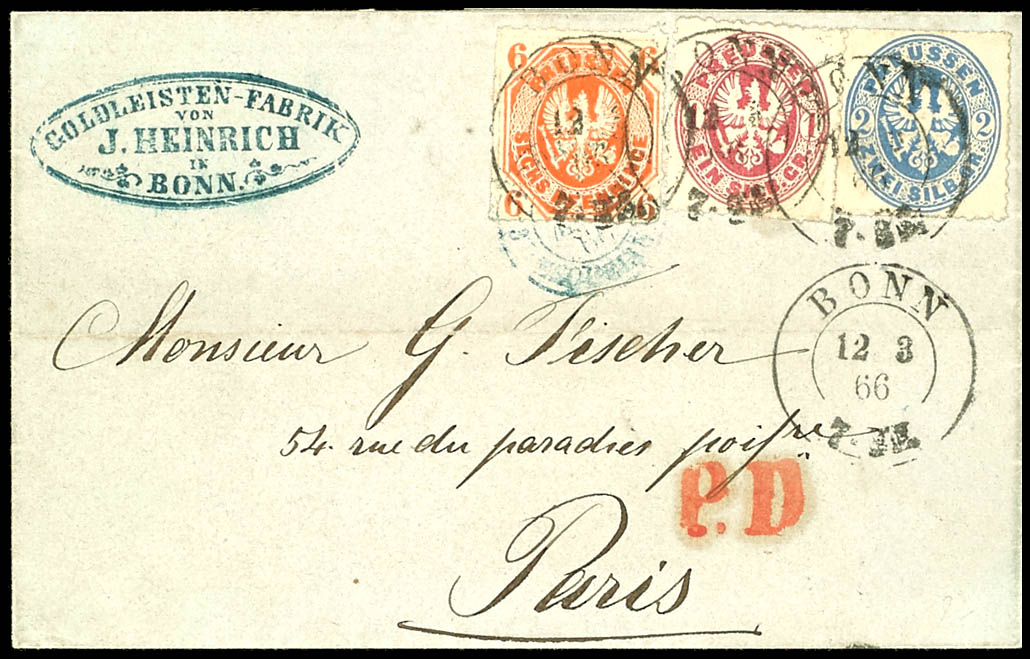 GOLDLEISTEN-FABRIK
VON
J. HEINRICH
IN
BONN.
6 6
PREUSSEN
SECHS PFENNINGE
6 6
BONN
12
PREUSSEN
1
EIN SILB. GR.
12
PREUSSEN
2 2
ZWEI SILB. GR.
12
BONN
12 3
66
Monsieur G. Fischer
54. rue du paradies poissre
P.D
Paris